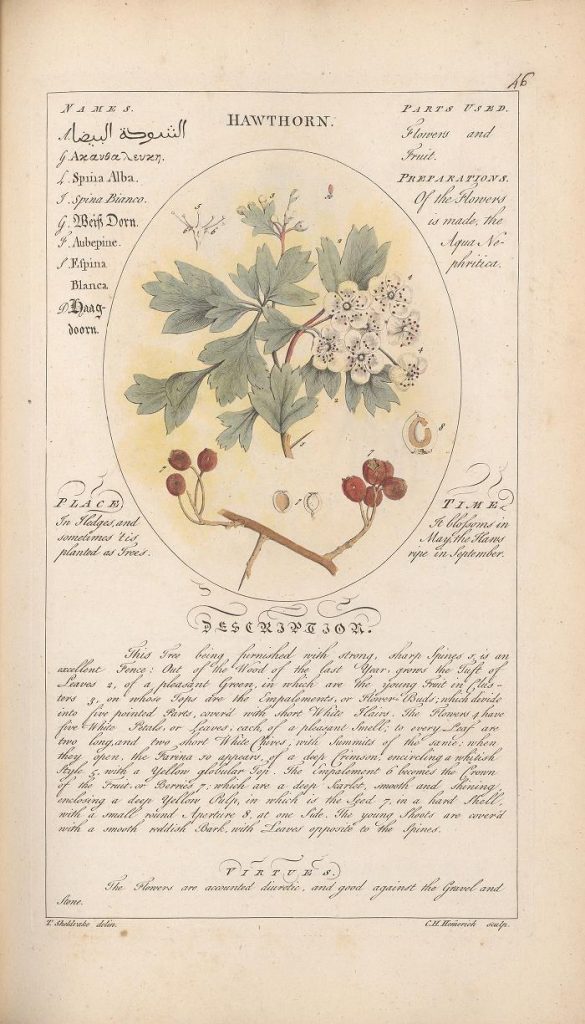 46
NAMES.
A. الشوكة البيضا
G. Ακανθα λευκη.
L. Spina Alba.
I. Spina Bianco.
G. Weiß Dorn.
F. Aubepine.
S. Espina
Blanca
D. Haag-
doorn.
HAWTHORN.
PARTS USED.
Flowers and
Fruit.
PREPARATIONS.
Of the Flowers
is made, the
Aqua Ne-
phritica.
PLACE
In Hedges, and
sometimes 'tis
planted as Trees.
TIME
It blossoms in
May, the Haws
ripe in September.
DESCRIPTION.
This Tree being furnished with strong, sharp Spines 1, is an
excellent Fence: Out of the Wood of the last Year, grows the Tuft of
Leaves 2, of a pleasant Green, in which are the young Fruit in Clus-
ters 3, on whose Tops are the Empalements, or Flower-Buds; which divide
into five pointed Parts, cover'd with short White Hairs. The Flowers 4 have
five White Petals, or Leaves; each, of a pleasant Smell; to every Leaf are
two long, and two short White Chives, with Summits of the same; when
they open, the Farina so appears, of a deep Crimson, encircling a whitish
Style 5, with a Yellow globular Top. The Impalement 6 becomes the Crown
of the Fruit, or Berries 7, which are a deep Scarlet, smooth and shining,
enclosing a deep Yellow Pulp, in which is the Seed 7, in a hard Shell,
with a small round Aperture 8, at one Side. The young Shoots are cover'd
with a smooth reddish Bark, with Leaves opposite to the Spines.
VIRTUES.
The Flowers are accounted diuretic, and good against the Gravel and
Stone.
T. Sheldrake delin.
C.H. Hemerich sculp.